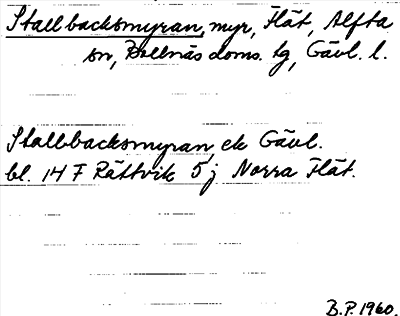 Stallbacksmyran, myr, Flät, Alfta
sn, Bollnäs doms. tg, Gävl. l.
Stallbacksmyran, ek Gävl.
bl. 14 F Rättvik 5 j Norra Flät.
B.P. 1960.